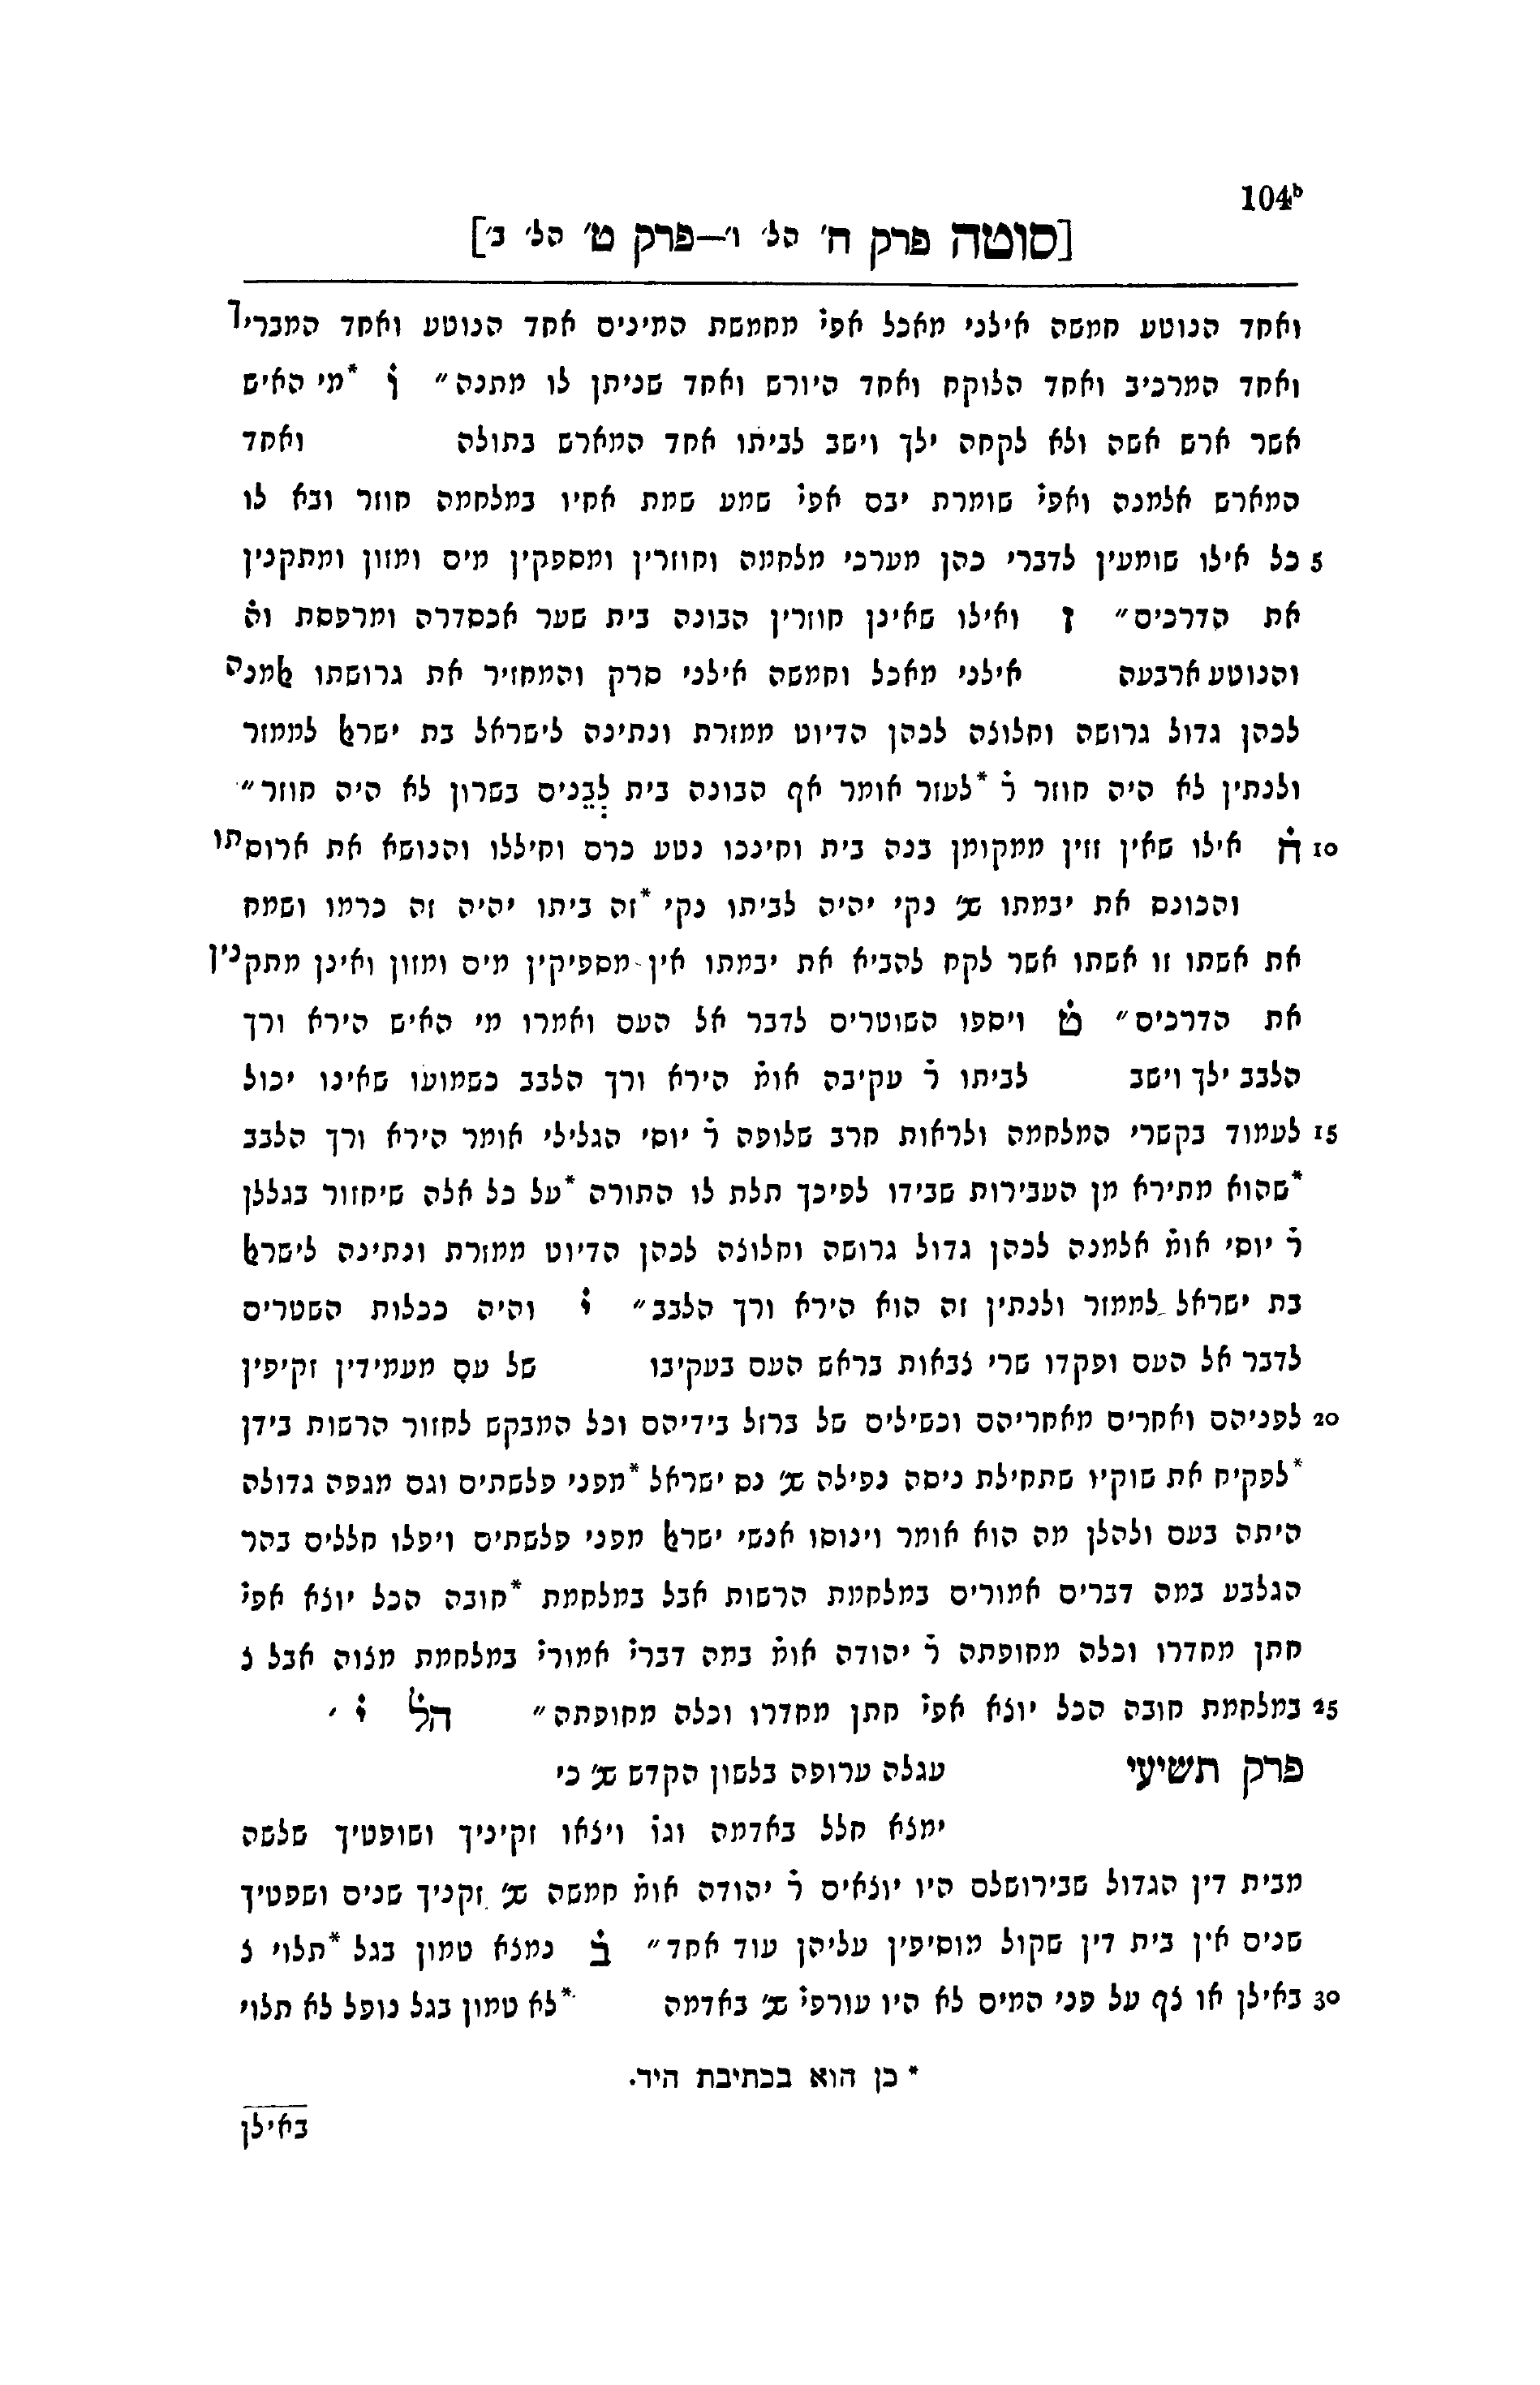 104b
[סוטה פרק ח' הל' ו'—פרק ט' הל' ב']
ואחד הנוטע חמשה אילני מאכל אפי' מחמשת המינים אחד הנוטע ואחד המבריך
ואחד המרכיב ואחד הלוקח ואחד היורש ואחד שניתן לו מתנה״ ו *מי האיש
אשר ארש אשה ולא לקחה ילך וישב לביתו אחד המארש בתולה ואחד
המארש אלמנה ואפי' שומרת יבם אפי' שמע שמת אחיו במלחמה חוזר ובא לו
5 כל אילו שומעין לדברי כהן מערכי מלחמה וחוזרין ומספקין מים ומזון ומתקנין
את הדרכים״ ז ואילו שאינן חוזרין הבונה בית שער אכסדרה ומרפסת וה'
והנוטע ארבעה אילני מאכל וחמשה אילני סרק והמחזיר את גרושתו אלמנה
לכהן גדול גרושה וחלוצה לכהן הדיוט ממזרת ונתינה לישראל בת ישראל לממזר
ולנתין לא היה חוזר ר' *לעזר אומר אף הבונה בית לְבֵנִים בשרון לא היה חוזר״
10 ח אילו שאין זזין ממקומן בנה בית וחינכו נטע כרם וחיללו והנושא את ארוסתו
והכונס את יבמתו שנ' נקי יהיה לביתו נקי *זה ביתו יהיה זה כרמו ושמח
את אשתו זו אשתו אשר לקח להביא את יבמתו אין מספיקין מים ומזון ואינן מתקנין
את הדרכים״ ט ויספו השוטרים לדבר אל העם ואמרו מי האיש הירא ורך
הלבב ילך וישב לביתו ר' עקיבה אומ' הירא ורך הלבב כשמועו שאינו יכול
15 לעמוד בקשרי המלחמה ולראות חרב שלופה ר' יוסי הגלילי אומר הירא ורך הלבב
*שהוא מתירא מן העבירות שבידו לפיכך תלת לו התורה *על כל אלה שיחזור בגללן
ר' יוסי אומ' אלמנה לכהן גדול גרושה וחלוצה לכהן הדיוט ממזרת ונתינה לישראל
בת ישראל לממזר ולנתין זה הוא הירא ורך הלבב״ י והיה ככלות השטרים
לדבר אל העם ופקדו שרי צבאות בראש העם בעקיבו של עם מעמידין זקיפין
20 לפניהם ואחרים מאחריהם וכשילים של ברזל בידיהם וכל המבקש לחזור הרשות בידן
*לפקיח את שוקיו שתחילת ניסה נפילה שנ' נס ישראל *מפני פלשתים וגם מגפה גדולה
היתה בעם ולהלן מה הוא אומר וינוסו אנשי ישראל מפני פלשתים ויפלו חללים בהר
הגלבע במה דברים אמורים במלחמת הרשות אבל במלחמת *חובה הכל יוצא אפי'
חתן מחדרו וכלה מחופתה ר' יהודה אומ' במה דברי' אמורי' במלחמת מצוה אבל צ
25 במלחמת חובה הכל יוצא אפי' חתן מחדרו וכלה מחופתה״ הל' י'
פרק תשיעי עגלה ערופה בלשון הקדש שנ' כי
ימצא חלל באדמה וגו' ויצאו זקיניך ושופטיך שלשה
מבית דין הגדול שבירושלם היו יוצאים ר' יהודה אומ' חמשה שנ' זקניך שנים ושפטיך
שנים אין בית דין שקול מוסיפין עליהן עוד אחד״ ב נמצא טמון בגל *תלוי צ
30 באילן או צף על פני המים לא היו עורפי' שנ' באדמה *לא טמון בגל נופל לא תלוי
* כן הוא בכתיבת היד.
באילן